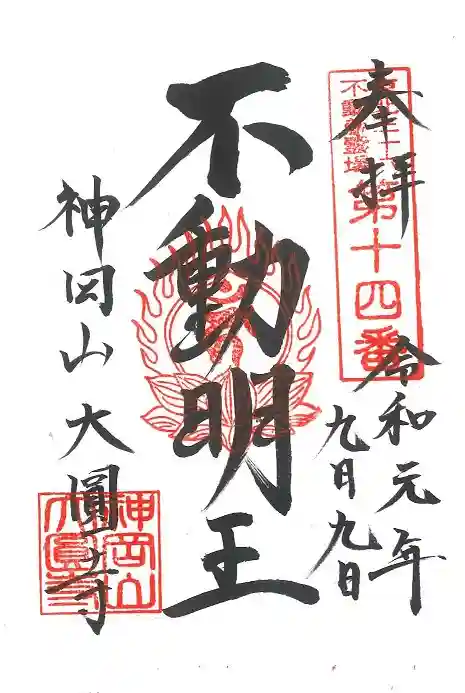 奉拝
不動尊靈場
第十四番
令和元年
九月九日
不動明王
神岡山 大圓寺
神岡山
大圓寺